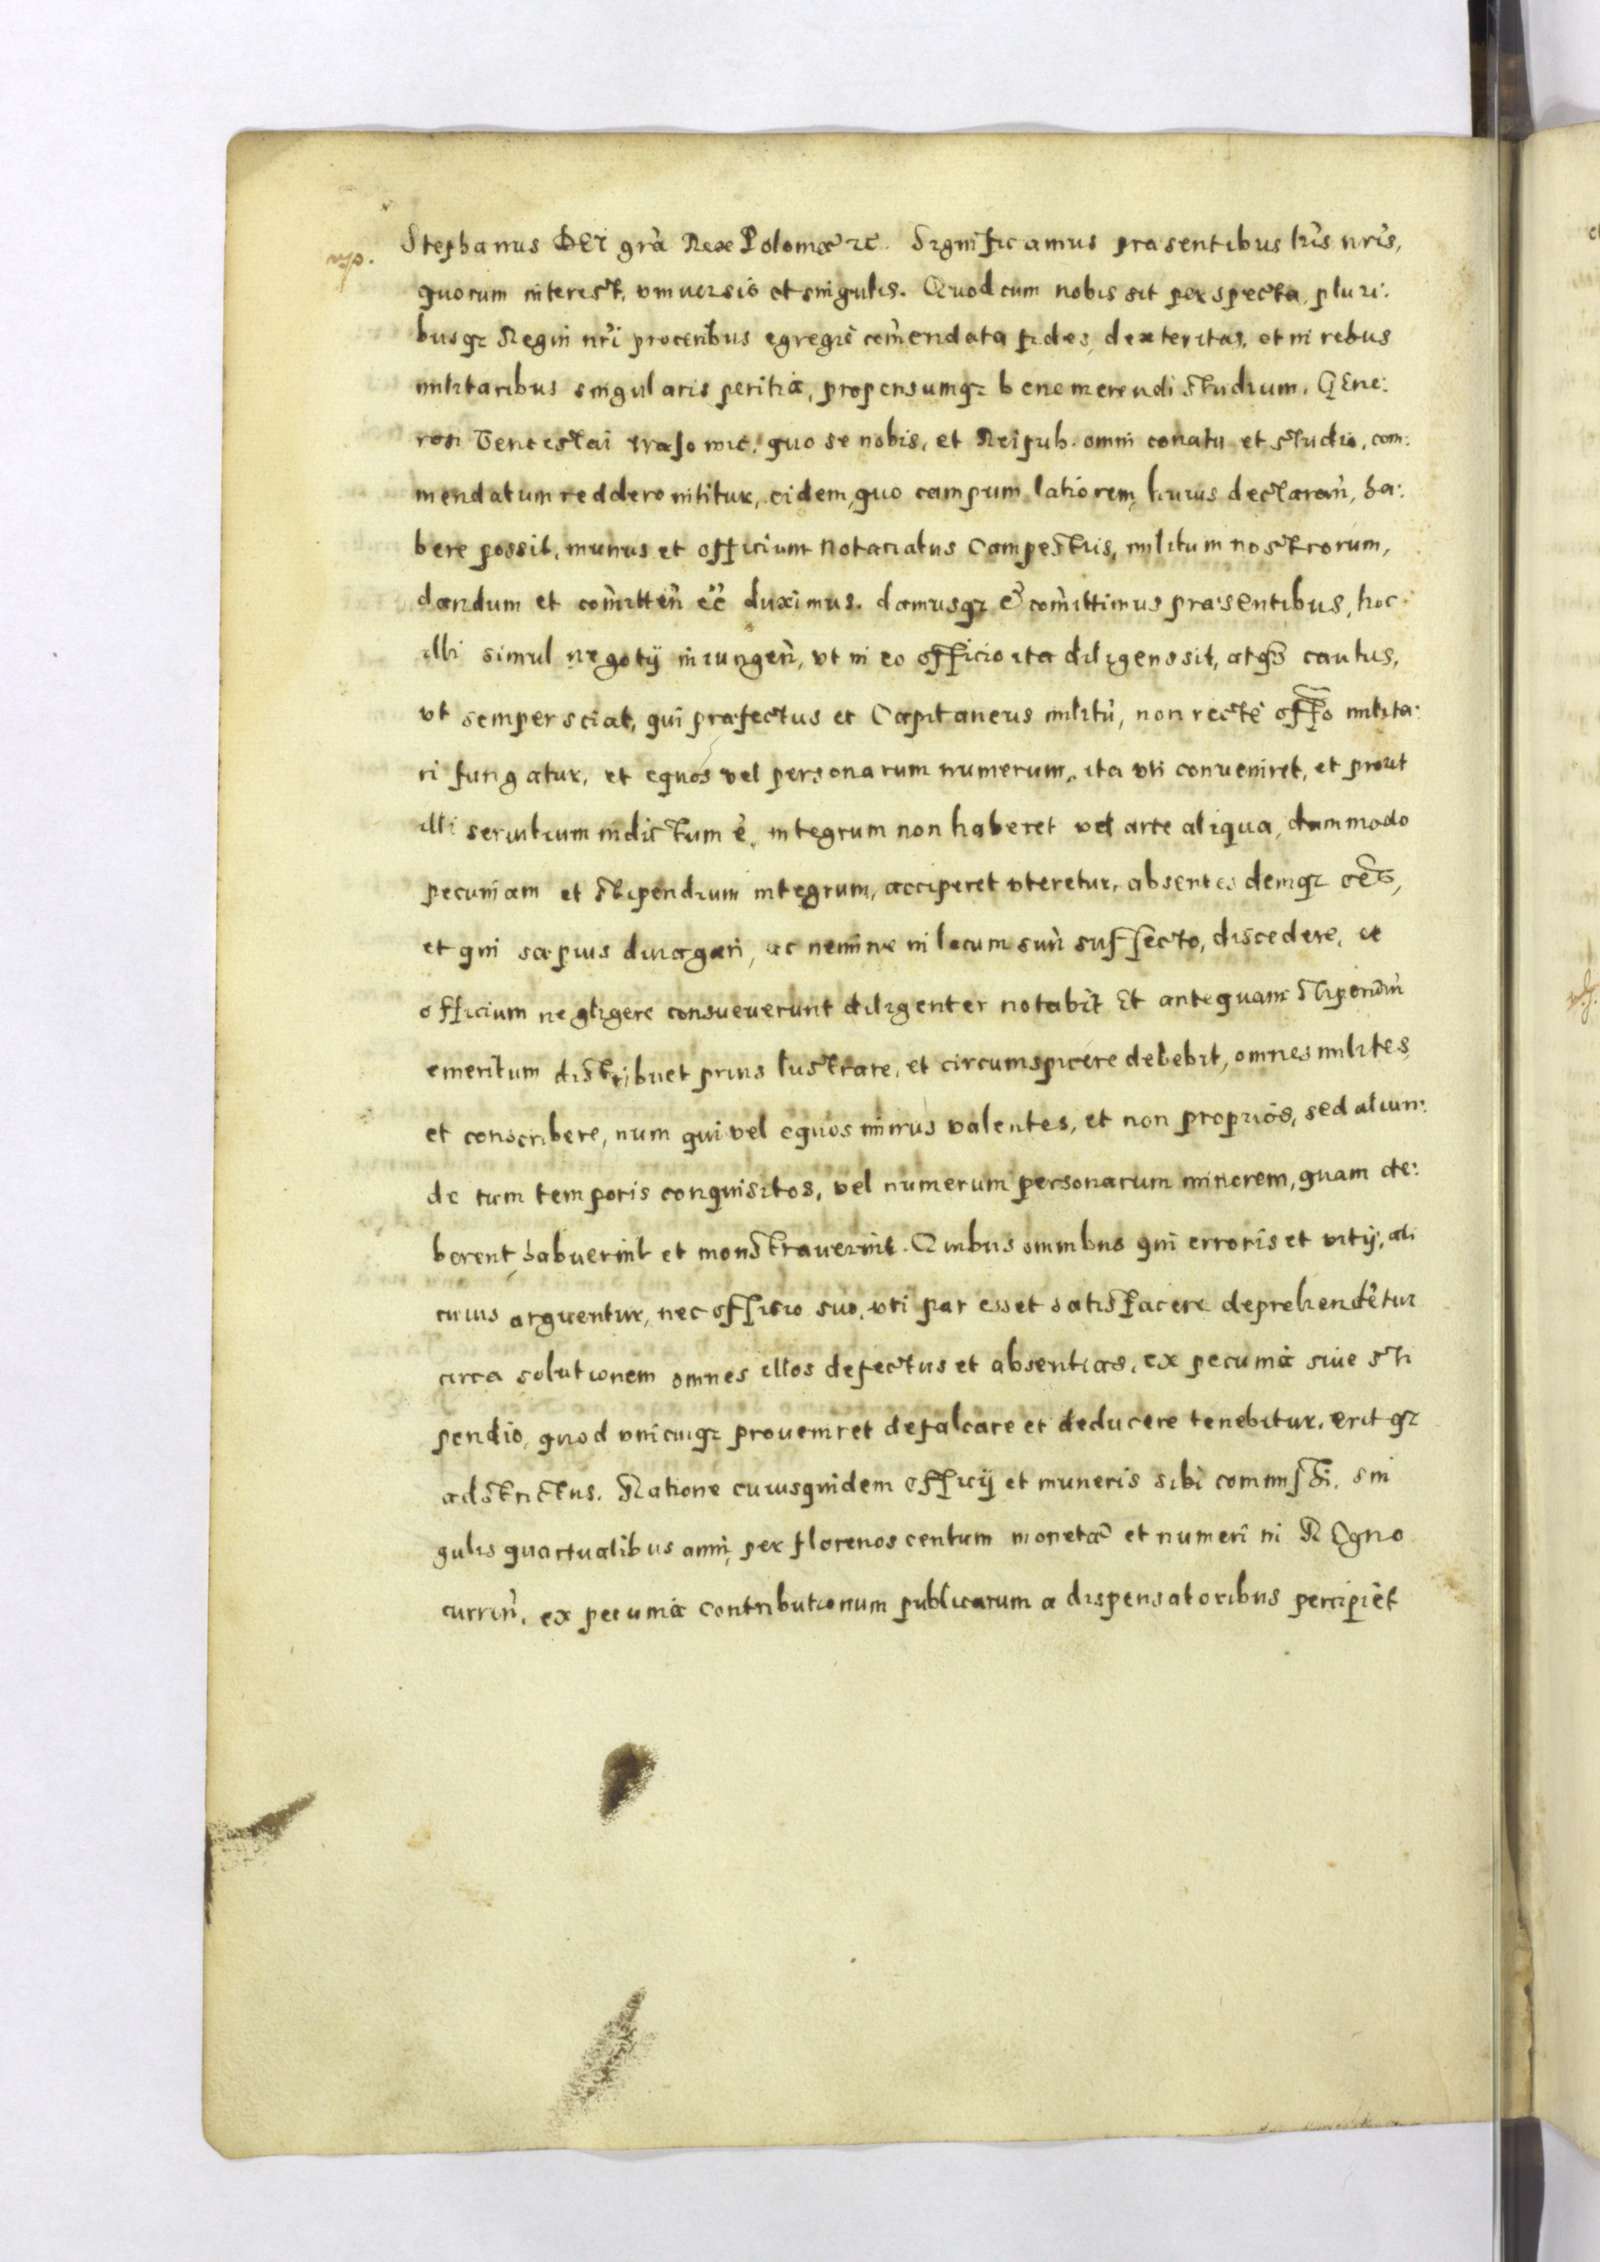 Stephanus DEI grã Rex Poloniæ etc. Significamus præsentibus lr̃is nr̃is,
quorum interest, vniuersis et singulis. Quod cum nobis sit perspecta, pluri:
busq; Regni nr̃i proceribus egregiè com̃endata fides, dexteritas, et in rebus
militaribus singularis peritia, propensumq; bene merendi studium. GEne:
rosi Venceslai quo se nobis, et Reipub. omni conatu et studio, com:
mendatum reddere nititur, eidem, quo campum latiorem, huius declaran̄, ha:
bere possit, munus et officium Notariatus Campestris, militum nostrorum,
dandum et com̃itten̄ eē duximus. damusq; et com̃ittimus præsentibus, hoc
illi simul negotÿ iniungen̄, vt in eo officio ita diligens sit, atq; cautus,
vt semper sciat, qui præfectus et Capitaneus militū, non rectè offō milita:
ri fungatur, et equos vel personarum numerum, ita vti conueniret, et prout
illi seruitium indictum ē, integrum non haberet vel arte aliqua, dummodo
pecuniam et stipendium integrum, acciperet vteretur, absentes demq; oēs,
et qui sæpius diuagari, ac nemine in locum suū suffecto, discedere, et
officium negligere consueuerunt diligenter notabit Et antequam stipendiū
emeritum distribuet prius lustrare, et circumspicere debebit, omnes milites
et conscribere, num qui vel equos minus valentes, et non proprios, sed aliun:
de tum temporis conquisitos, vel numerum personarum minorem, quam de:
berent, habuerint et monstrauerint. Quibus omnibus qui erroris et vitÿ, ali
cuius arguentur, nec officio suo, vti par esset satisfacere deprehendētur
circa solutionem omnes illos defectus et absentias, ex pecunia siue sti
pendio, quod vnicuiq; proueniret defalcare et deducere tenebitur, erit q;
adstrictus. Ratione cuiusquidem officÿ et muneris sibi commissi, sin
gulis quartualibus anni, per florenos centum monetæ et numeri in REgno
currēn̄, ex pecunia contributionum publicarum a dispensatoribus percipiet